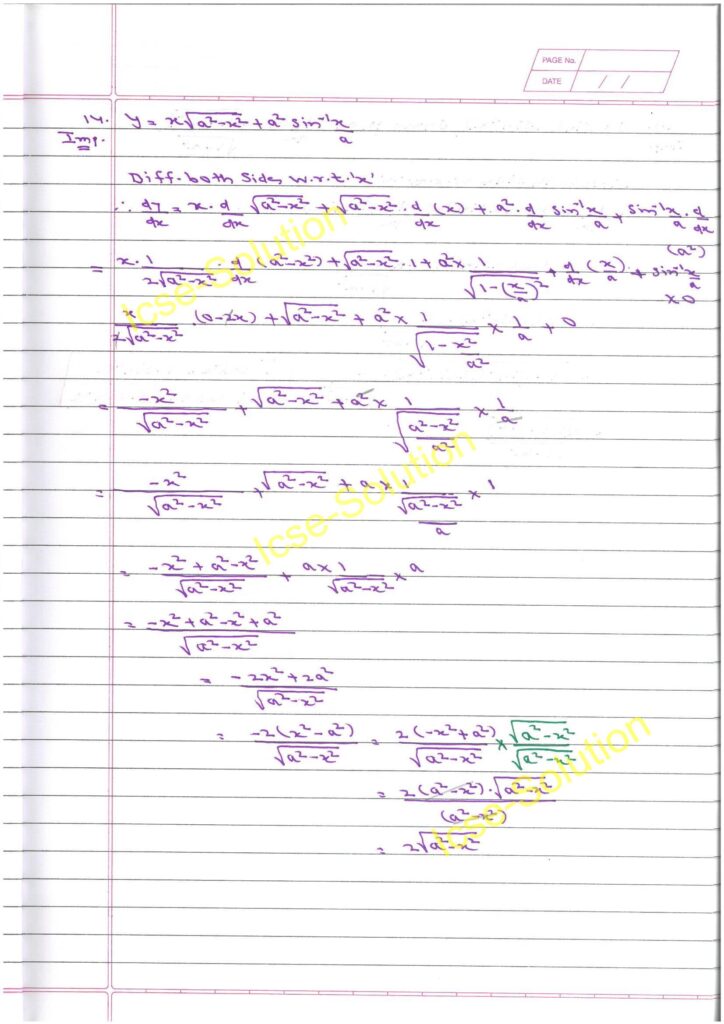 PAGE No.
DATE / /
14. y = x√(a²-x²) + a² sin⁻¹ x/a
Imp.
Diff. both Side, w.r.t. 'x'
∴ dy/dx = x · d/dx √(a²-x²) + √(a²-x²) · d/dx (x) + a² · d/dx sin⁻¹ x/a + sin⁻¹ x/a · d/dx (a²)
= x · 1/(2√(a²-x²)) · d/dx (a²-x²) + √(a²-x²) · 1 + a² × 1/√(1-(x/a)²) + d/dx (x/a) + sin⁻¹ x/a × 0
x/(2√(a²-x²)) · (0-2x) + √(a²-x²) + a² × 1/√(1-x²/a²) × 1/a + 0
= -x²/√(a²-x²) + √(a²-x²) + a² × 1/√((a²-x²)/a²) × 1/a
= -x²/√(a²-x²) + √(a²-x²) + a × 1/(√(a²-x²)/a) × 1
= (-x² + a² - x²)/√(a²-x²) + a × 1/√(a²-x²) × a
= (-x² + a² - x² + a²)/√(a²-x²)
= (-2x² + 2a²)/√(a²-x²)
= -2(x²-a²)/√(a²-x²) = 2(-x²+a²)/√(a²-x²) × √(a²-x²)/√(a²-x²)
= 2(a²-x²)·√(a²-x²)/(a²-x²)
= 2√(a²-x²)
Icse-Solution
Icse-Solution
Icse-Solution